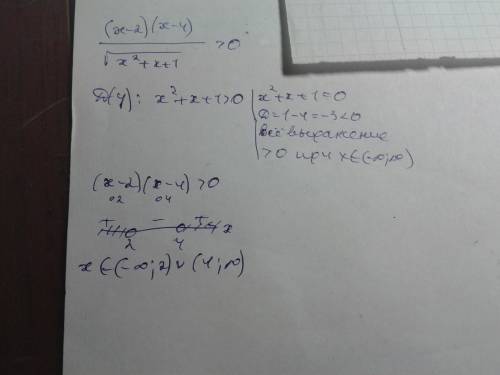 (x-2)(x-4) / √(x²+x+1) > 0
Д(y): x²+x+1>0
x²+x+1=0
D=1-4=-3<0
всё выражение
>0 при x∈(-∞;∞)
(x-2)(x-4)>0
02 04
+ - +
2 4 x
x∈(-∞;2)∪(4;∞)